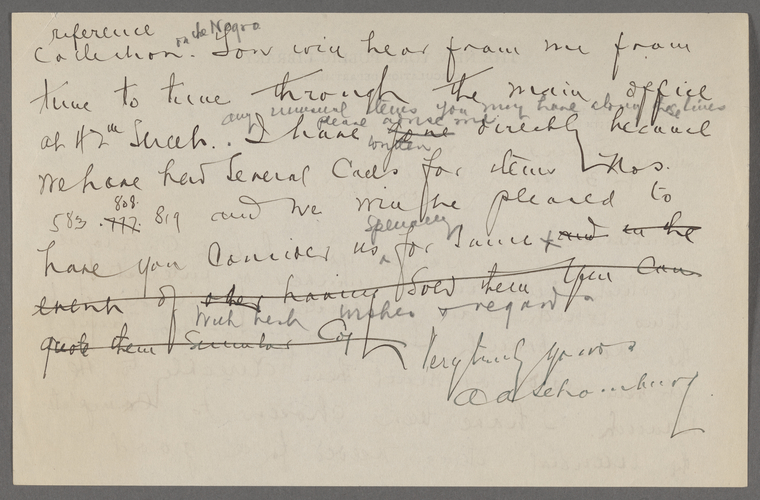 reference
on the Negro
Collection. You will hear from me from
time to time through the main office
any unusual items you may have along these lines
please advise me.
at 42nd Street. I have gone directly because
written
we have had several calls for items Nos.
808.
583. 777. 819 and we will be pleased to
specially
have you consider us for same & and in the
event of other having sold them you can
With best wishes & regards
quote them similar
Very truly yours
A A Schomburg